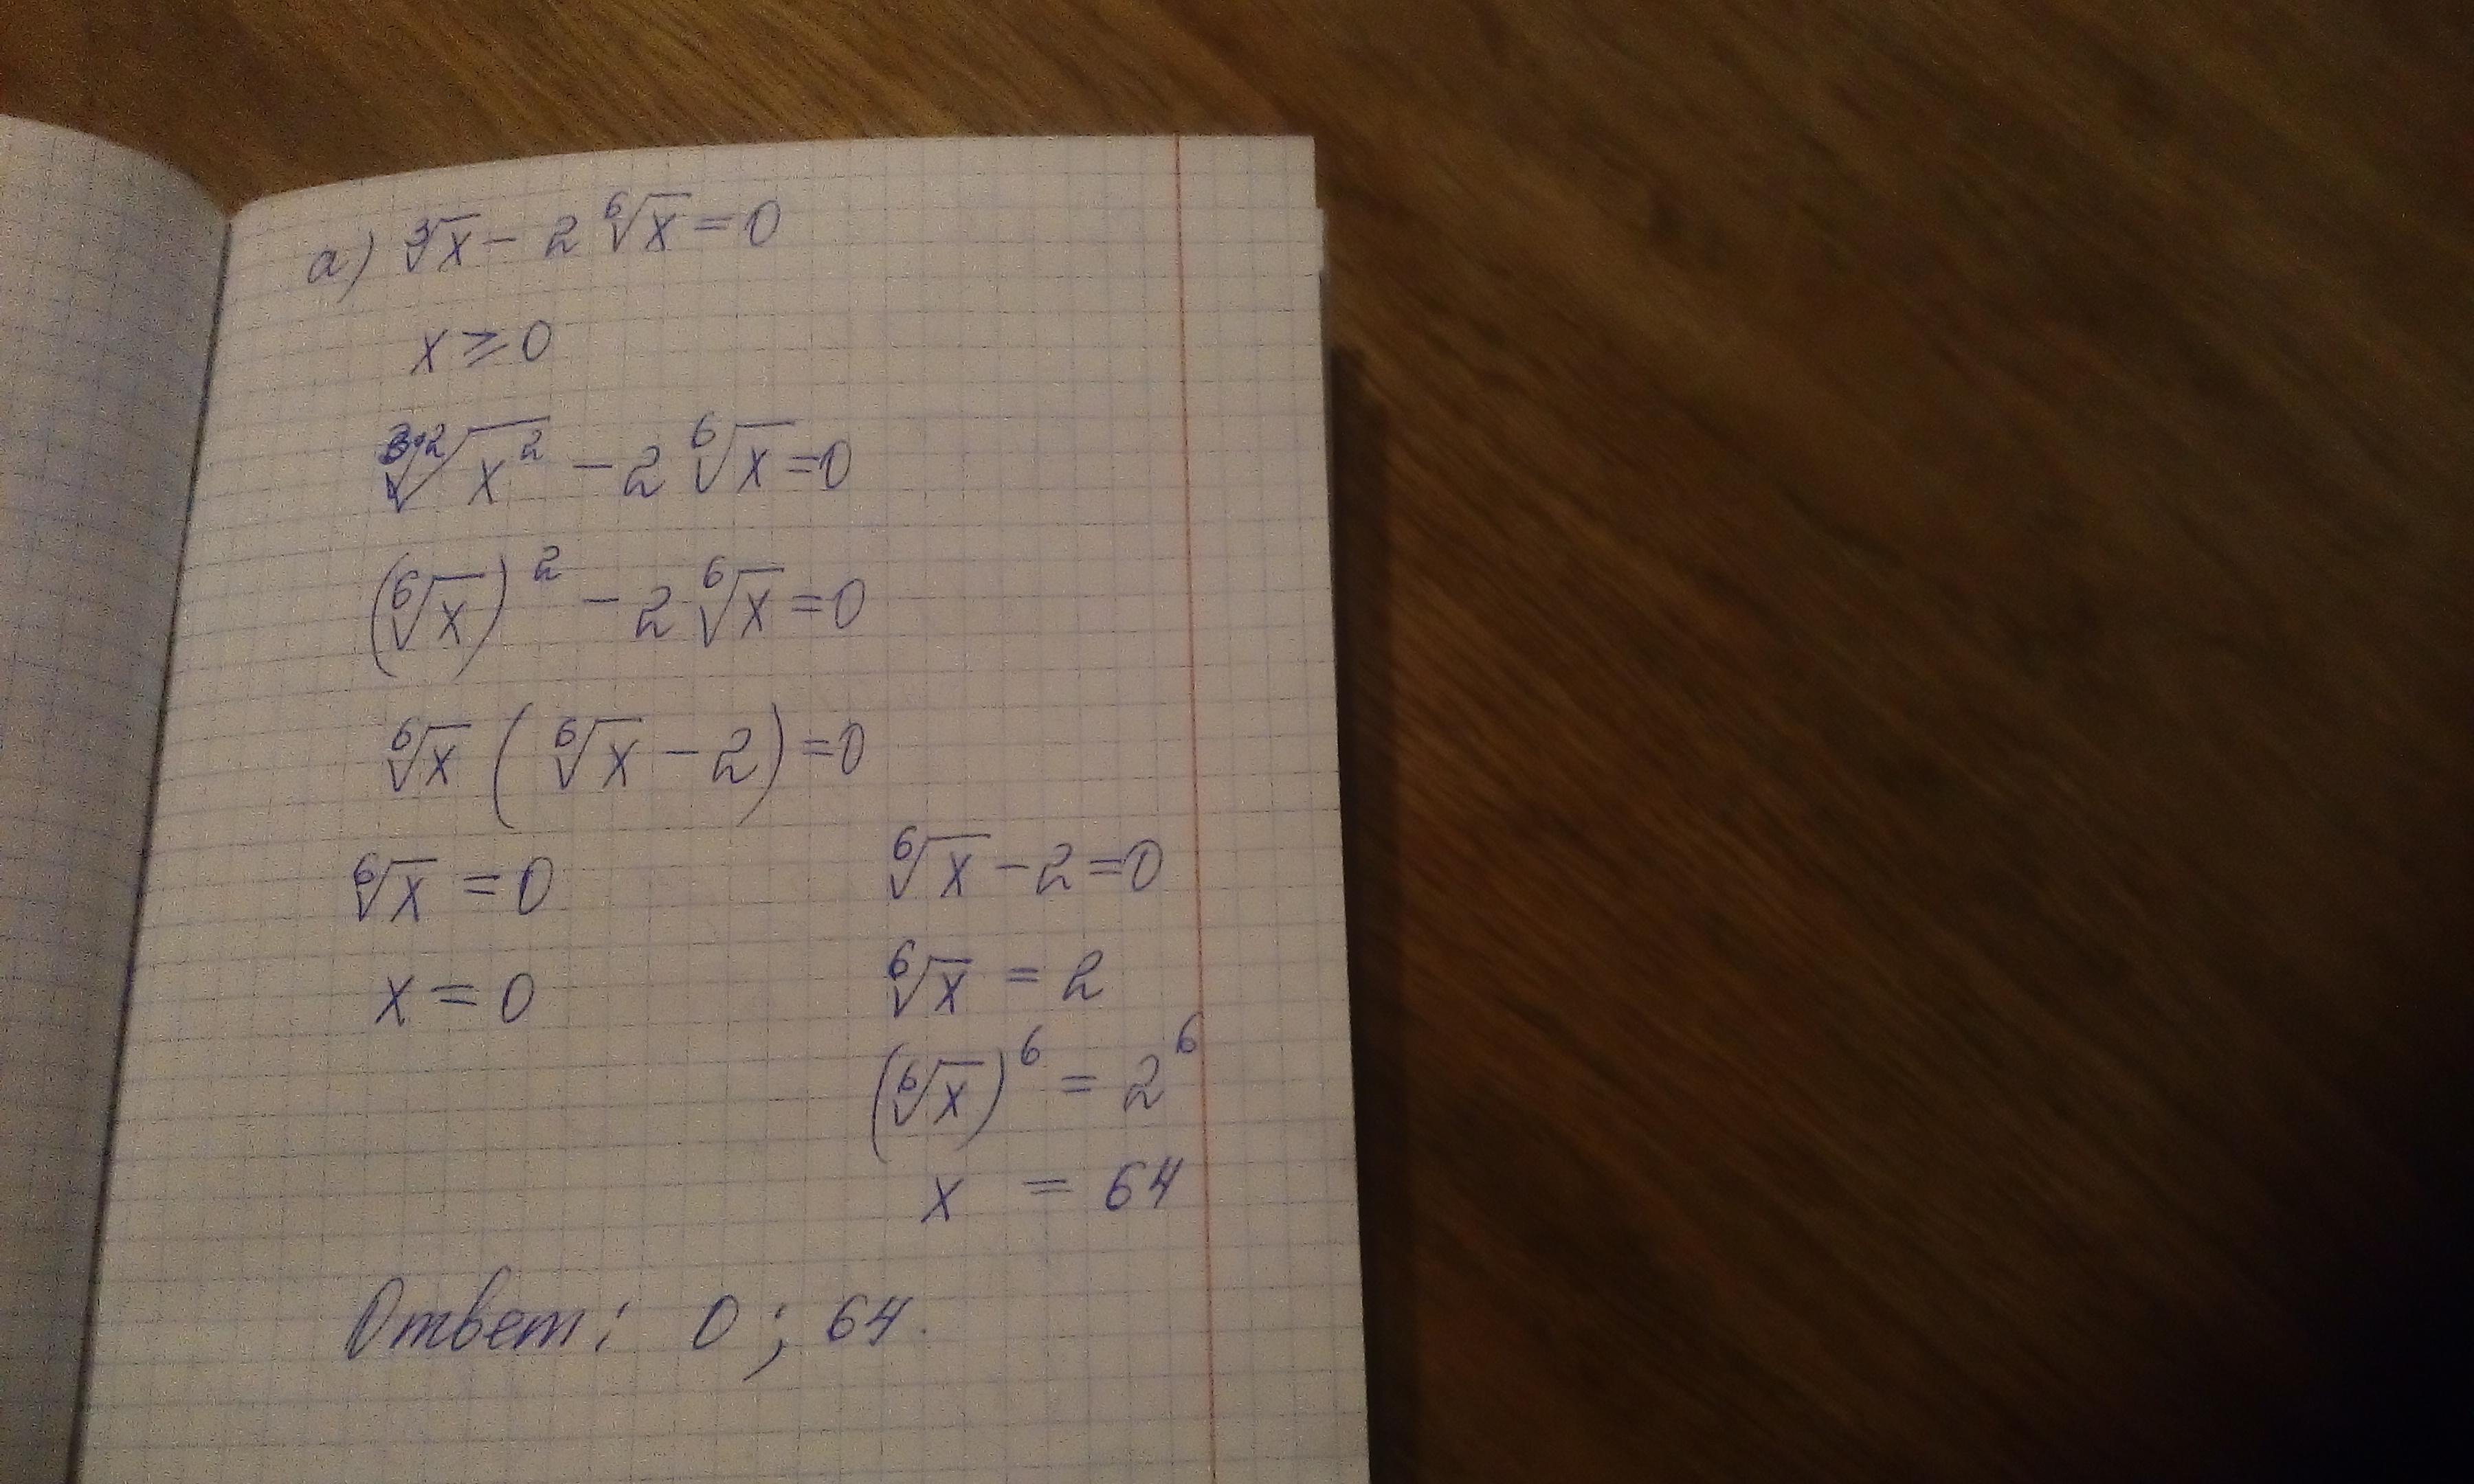 а) ∛x - 2 ⁶√x = 0
x ≥ 0
³·²√x² - 2 ⁶√x = 0
(⁶√x)² - 2 ⁶√x = 0
⁶√x (⁶√x - 2) = 0
⁶√x = 0 ⁶√x - 2 = 0
x = 0 ⁶√x = 2
(⁶√x)⁶ = 2⁶
x = 64
Ответ: 0; 64.